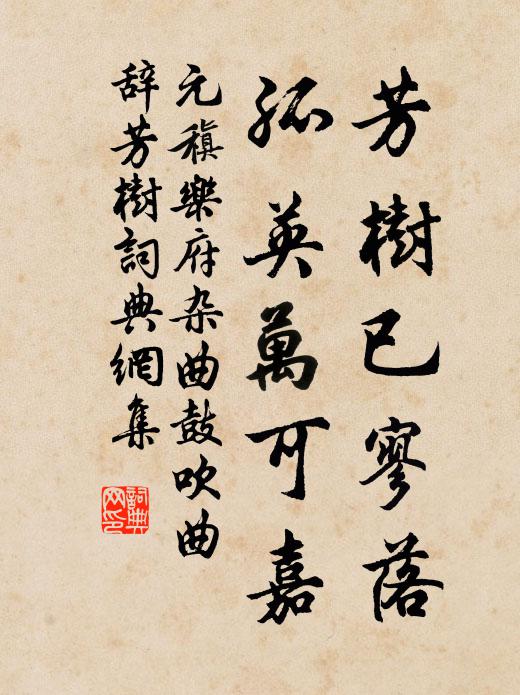 芳樹已寥落
孤英萬可嘉
元稹樂府杂曲鼓吹曲
辞芳樹詞典網集
詞典
网印